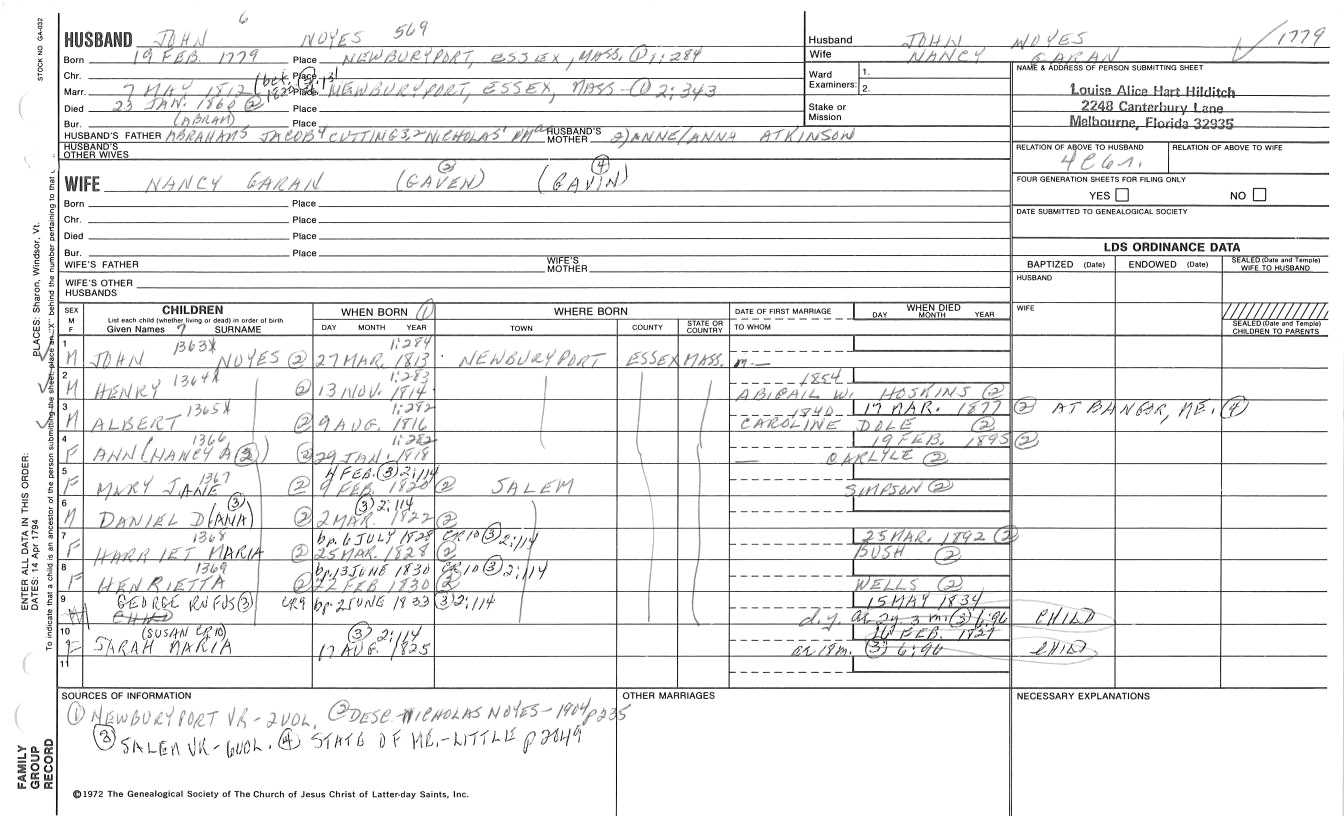 6
HUSBAND JOHN NOYES 569
Born 19 FEB. 1779 Place NEWBURYPORT, ESSEX, MASS. ① 1:284
Chr. Place
Marr. 7 MAY 1812 Place NEWBURYPORT, ESSEX, MASS - ① 2:343
Died 23 JAN. 1860 ② Place
Bur. (ABRAM) Place
HUSBAND'S FATHER ABRAHAM5 JACOB4 CUTTING3,2 NICHOLAS1 HUSBAND'S MOTHER 2) ANNE/ANNA ATKINSON
HUSBAND'S OTHER WIVES
WIFE NANCY GARAN (GAVEN) ② (GAVIN) ④
Born Place
Chr. Place
Died Place
Bur. Place
WIFE'S FATHER WIFE'S MOTHER
WIFE'S OTHER HUSBANDS
Husband JOHN NOYES 1779
Wife NANCY GARAN
Ward Examiners: 1. 2.
Stake or Mission
NAME & ADDRESS OF PERSON SUBMITTING SHEET
Louise Alice Hart Hilditch
2248 Canterbury Lane
Melbourne, Florida 32935
RELATION OF ABOVE TO HUSBAND RELATION OF ABOVE TO WIFE
FOUR GENERATION SHEETS FOR FILING ONLY
YES NO
DATE SUBMITTED TO GENEALOGICAL SOCIETY
LDS ORDINANCE DATA
BAPTIZED (Date) ENDOWED (Date) SEALED (Date and Temple) WIFE TO HUSBAND
HUSBAND
WIFE
SEALED (Date and Temple) CHILDREN TO PARENTS
SEX M F
CHILDREN
List each child (whether living or dead) in order of birth
Given Names 7 SURNAME
WHEN BORN ①
DAY MONTH YEAR
WHERE BORN
TOWN COUNTY STATE OR COUNTRY
DATE OF FIRST MARRIAGE
TO WHOM
WHEN DIED
DAY MONTH YEAR
1 1363X 1:284
M JOHN NOYES ② 27 MAR. 1813 NEWBURYPORT ESSEX MASS. m-
2 1364X 1:283 1854
M HENRY ② 13 NOV. 1814 ABIGAIL W. HOSKINS ②
3 1365X 1:282 1840 17 MAR. 1877 ② AT BANGOR, ME. ④
M ALBERT ② 9 AUG. 1816 CAROLINE DOLE ②
4 1366 1:282 19 FEB. 1895 ②
F ANN (NANCY A ②) ② 29 JAN. 1818 — CARLYLE ②
5 1367 4 FEB. ③ 2:114
F MARY JANE ② 9 FEB. 1820 ② SALEM SIMPSON ②
6 ③ ③ 2:114
M DANIEL D (ANA) ② 2 MAR. 1822 ②
7 1368 bp. 6 JULY 1828 CR10 ③ 2:114 25 MAR. 1892 ②
F HARRIET MARIA ② 25 MAR. 1828 ② BUSH ②
8 1369 bp. 13 JUNE 1830 CR10 ③ 2:114
F HENRIETTA ② 22 FEB 1830 ② WELLS ②
9 GEORGE RUFUS ③ CR9 bp. 2 JUNE 1833 ③ 2:114 15 MAY 1834
M CHILD d.y. ae 2y. 3 m. ③ 6:96 CHILD
10 (SUSAN CR10) ③ 2:114 16 FEB. 1827
F SARAH MARIA 17 AUG. 1825 ae 18m. ③ 6:96 CHILD
11
SOURCES OF INFORMATION
① NEWBURYPORT VR - 2VOL. ② DESC NICHOLAS NOYES - 1904 p235
③ SALEM VR - 6VOL. ④ STATE OF ME. - LITTLE p2049
OTHER MARRIAGES
NECESSARY EXPLANATIONS
©1972 The Genealogical Society of The Church of Jesus Christ of Latter-day Saints, Inc.
STOCK NO. GA-032
PLACES: Sharon, Windsor, Vt.
ENTER ALL DATA IN THIS ORDER:
DATES: 14 Apr 1794
To indicate that a child is an ancestor of the person submitting the sheet, place an "X" behind the number pertaining to that
FAMILY GROUP RECORD